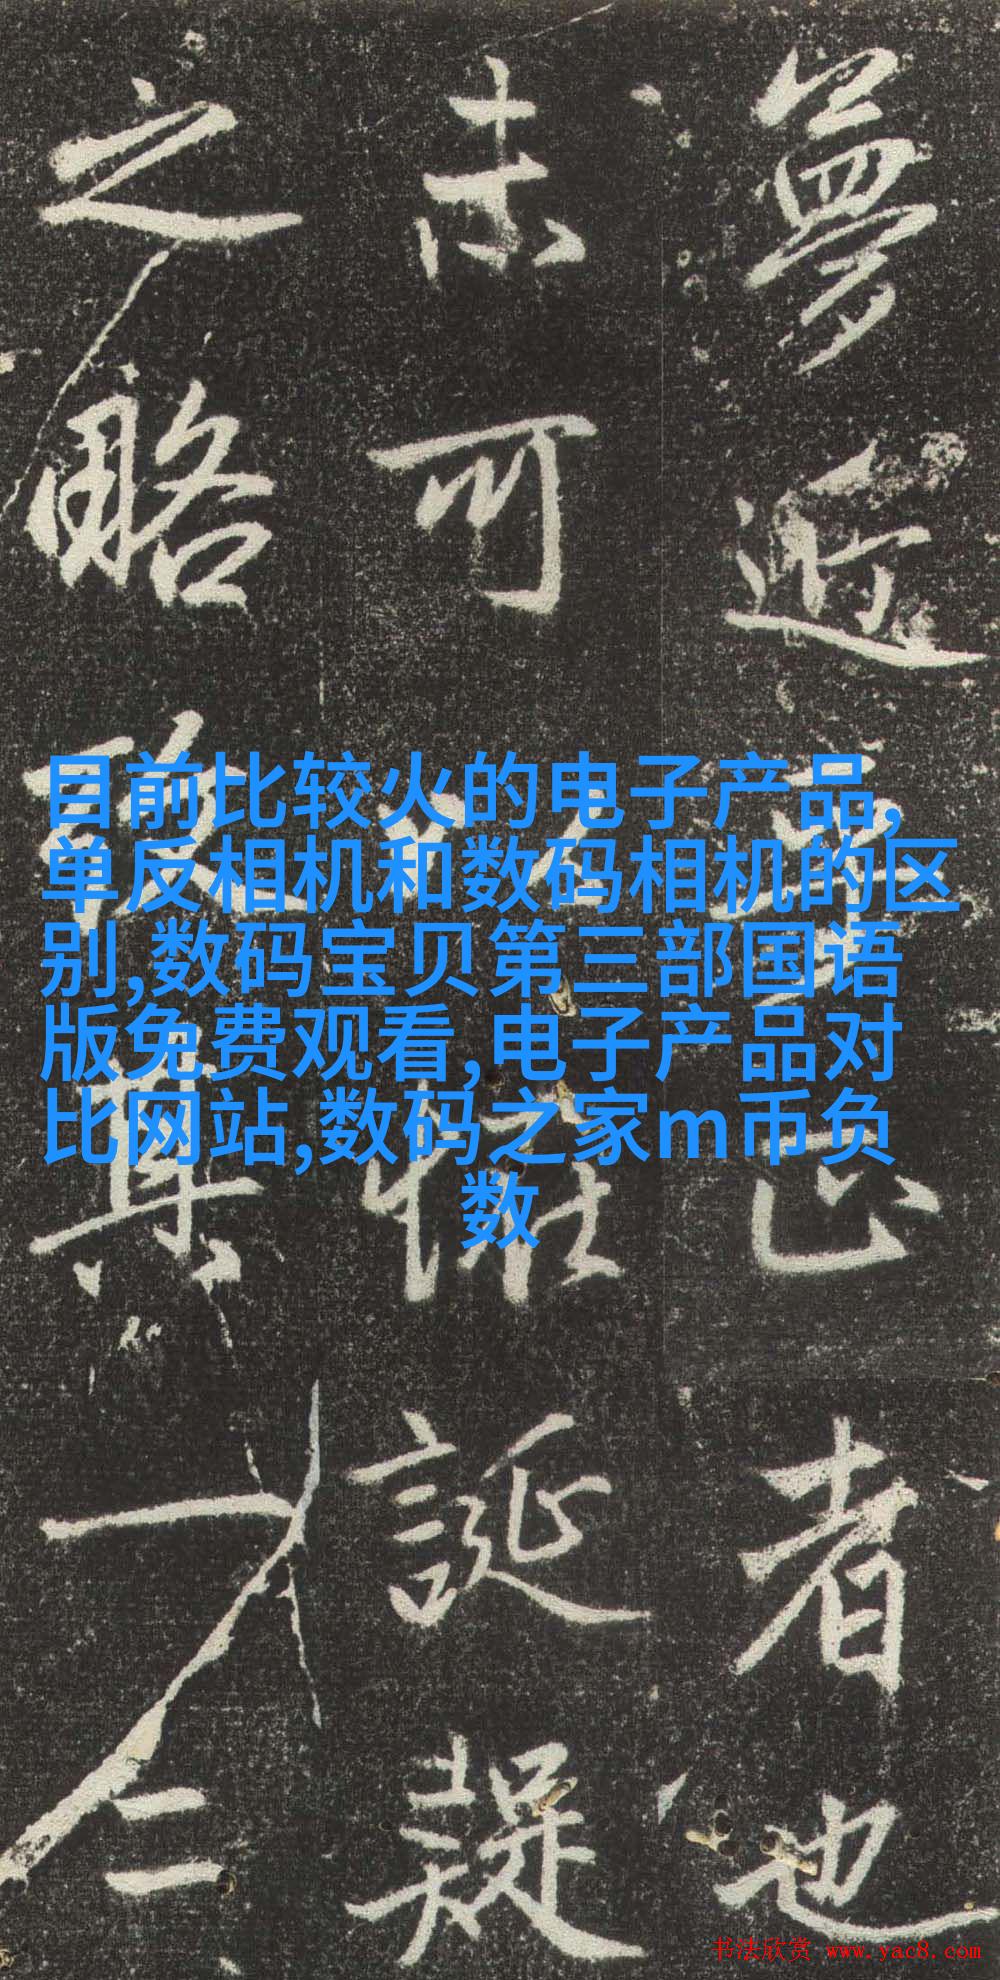 目前比较火的电子产品,
单反相机和数码相机的区
别,数码宝贝第三部国语
版免费观看,电子产品对
比网站,数码之家m币负
数
夢近正者也
可以誕疑
之略其一仁
书法欣赏 www.yac8.com